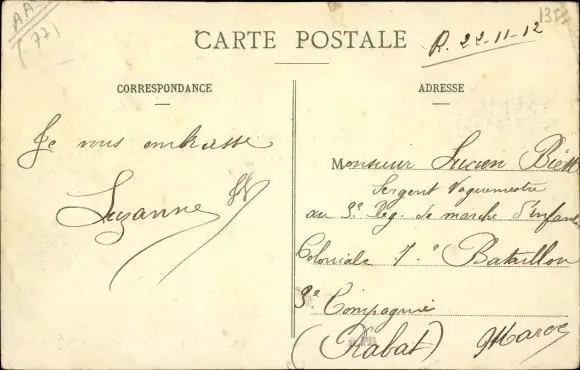 AA
(77)
1355
CARTE POSTALE
R. 22-11-12
CORRESPONDANCE
ADRESSE
Je vous embrasse
Suzanne
Monsieur Lucien Biette
Sergent Vaguemestre
au 3e Reg. de marche d'infante
Coloniale 7.e Bataillon
3.e Compagnie
(Rabat) Maroc